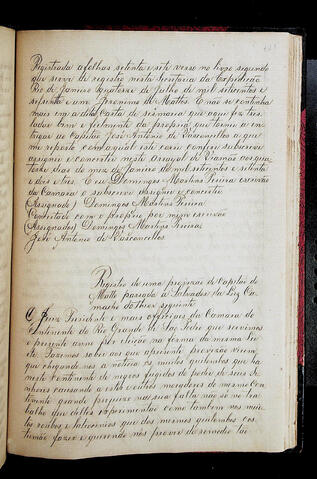 Registrada a folhas setenta e sete verso no livro segundo
que serve de registro nesta Secretaria da Expedição
Rio de Janeiro quatorze de Julho de mil setecentos e
setenta e um Jeronimo de Mattos. E não se continha
mais em a dita Carta de sesmaria que aqui fiz tres-
ladar bem e fielmente da propria que tornei a en-
tregar ao Capitão José Antonio de Vasconcellos a que
me reporto com a qual este conferi subscrevi
assignei e concertei neste arraial de Viamão aos qua-
torze dias do mez de Janeiro de mil setecentos e setenta
e dois e tres. E eu Domingos Martins Pereira escrivão
da Camara o subscrevi assignei e concertei
(Assignado) Domingos Martins Pereira
Concertado com o proprio por mim escrivão
(Assignados) Domingos Martins Pereira
José Antonio de Vasconcellos
Registro de uma provizão de Capitão do
Matto passada a Salvador da Luz Ca-
macho do theor seguinte
O Juiz Presidente e mais officiaes da Camara do
Continente do Rio Grande de São Pedro que servimos
o prezente anno por eleição na forma da mesma Ley
etc. Fazemos saber aos que a prezente provizão virem
que chegando-nos a noticia os muitos quilombos que ha
neste Continente de negros fugidos do poder de seus Se-
nhores causando a estes e outros moradores do mesmo Con-
tinente grande prejuizo nas suas faltas não só no tra-
balho que delles experimentão como tambem nos mui-
tos roubos e latrocinios que dos mesmos quilombos cos-
tumão fazer e querendo nós prover de remedio tão